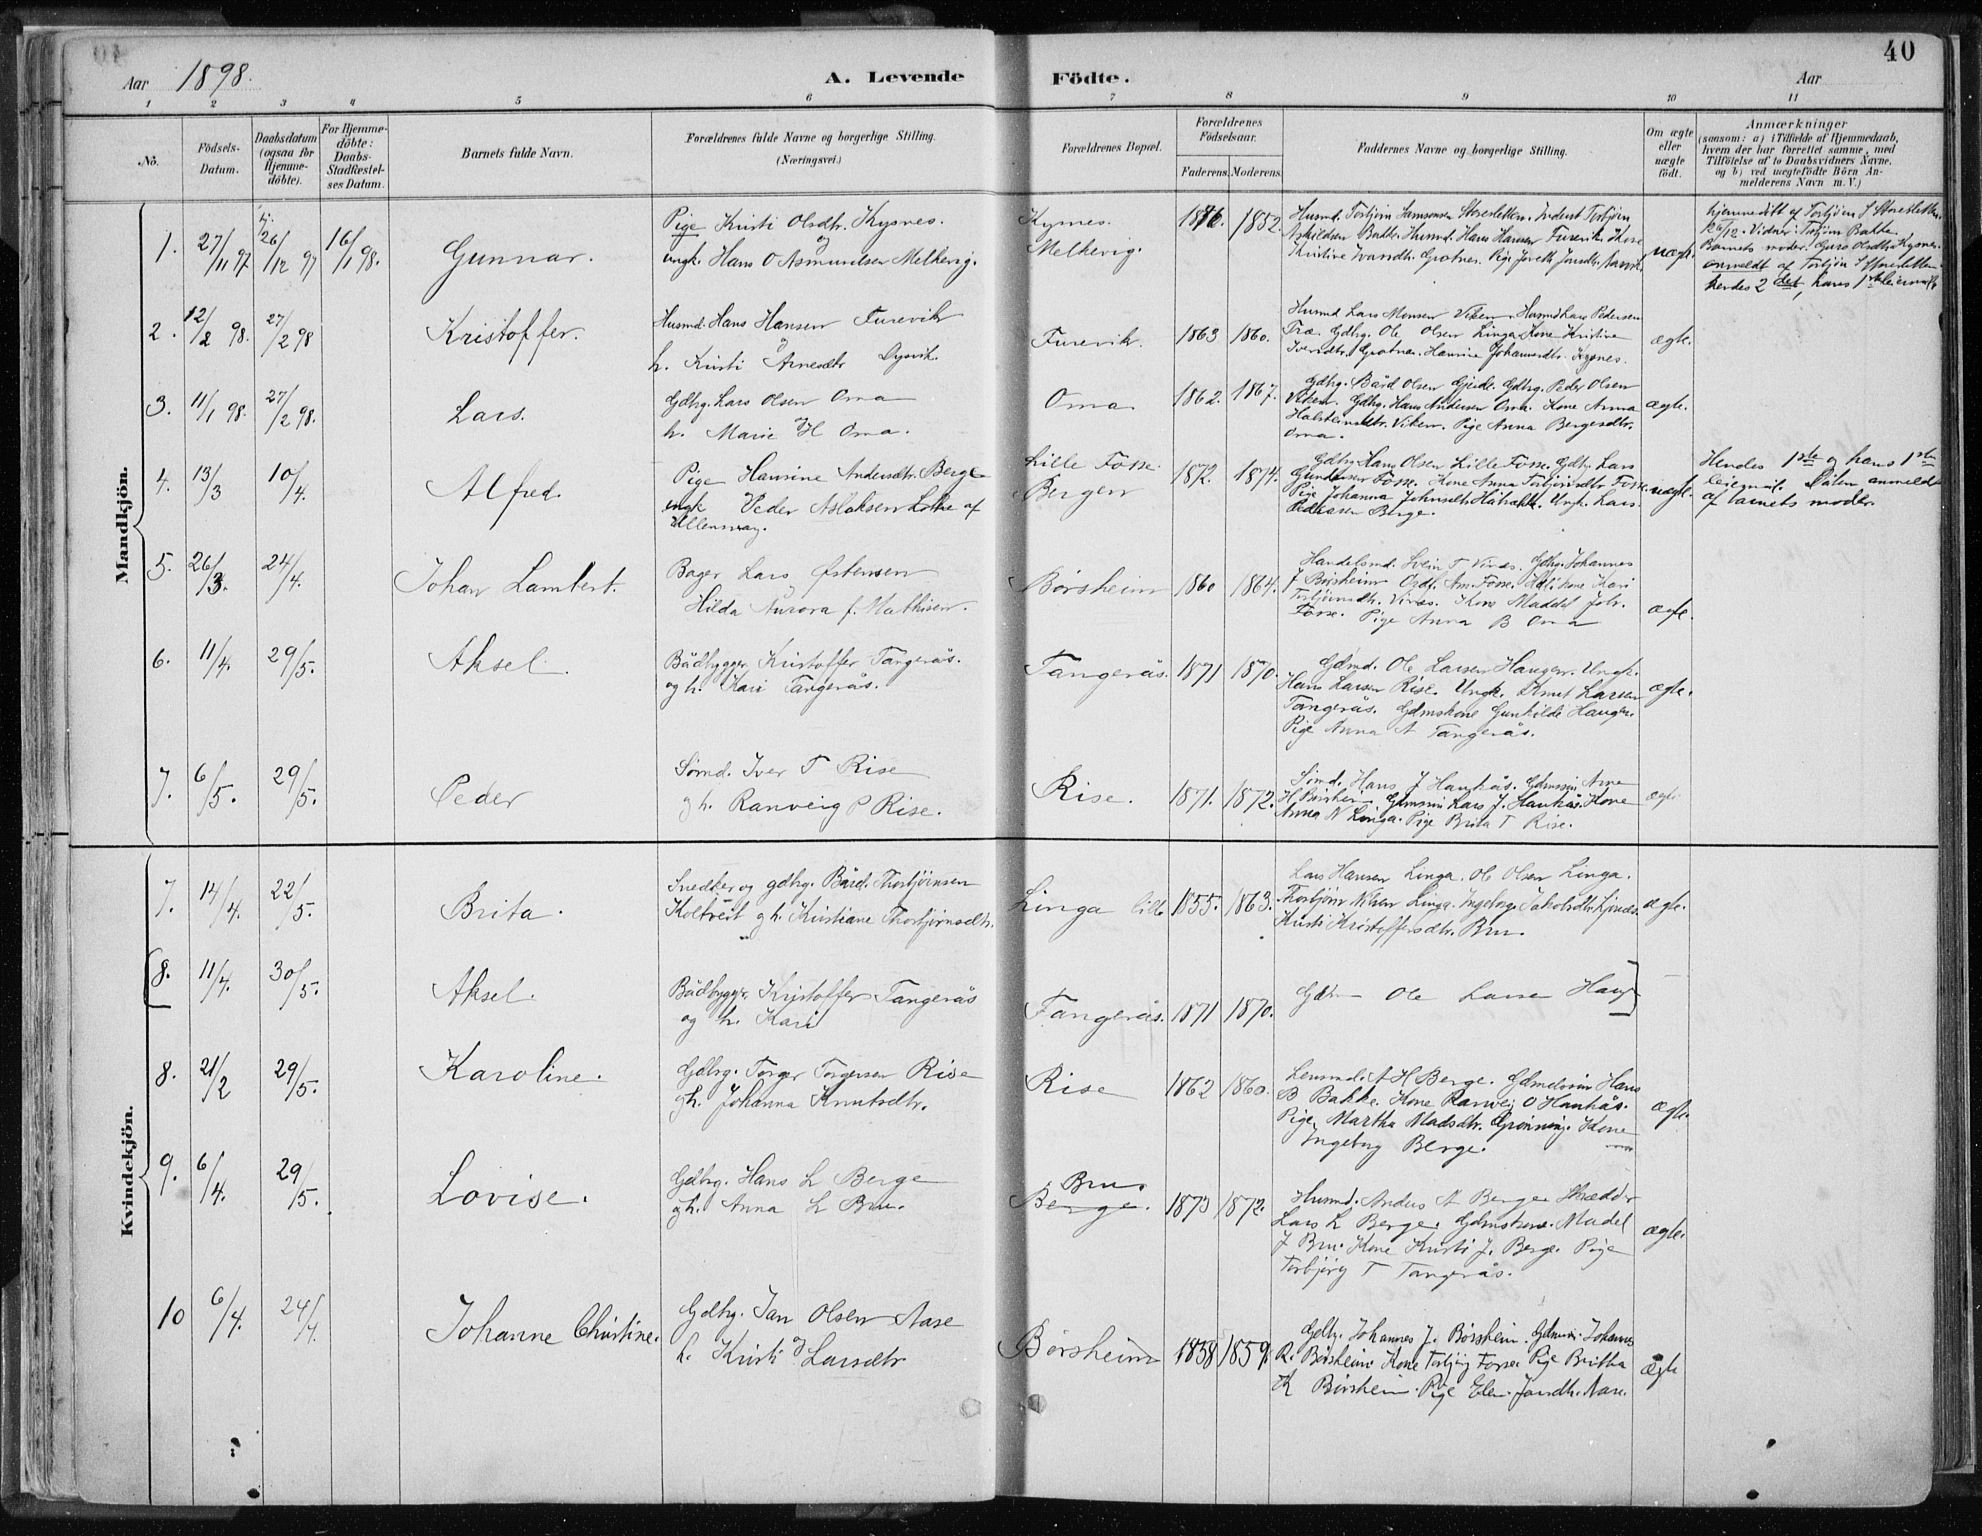 40
Aar 1898.
A. Levende Födte.
Aar
1 2 3 4 5 6 7 8 9 10 11
No.
Födsels-
Datum.
Daabsdatum
(ogsaa for
Hjemme-
döbte).
For Hjemme-
döbte:
Daabs-
Stadfæstel-
ses Datum.
Barnets fulde Navn.
Forældrenes fulde Navne og borgerlige Stilling.
(Næringsvei.)
Forældrenes Bopæl.
Forældrenes
Födselsaar.
Faderens. Moderens.
Faddernes Navne og borgerlige Stilling.
Om ægte
eller
uægte
födt.
Anmærkninger
(saasom: a) i Tilfælde af Hjemmedaab,
hvem der har forrettet samme, med
Tilföielse af to Daabsvidners Navne,
og b) ved uægtefödte Börn An-
melderens Navn m. V.)
Mandkjön.
1. 27/11 97 26/12 97 16/1 98. Gunnar.
Pige Kristi Olsdtr. Kysnes.
og
ungk. Hans O Asmundsen Melkevig.
Kysnes.
Melkevig.
1852.
Husmd. Torbjörn Samsonsen Storesletten. Inderst Torbjörn
Askildsen Bakke. Husmd. Hans Hansen Furevik. Kone
Kristine Grotnes. Pige
uægte.
hjemmedöbt af Torbjörn S Storesletten
26/12. Vidner: Torbjörn Bakke
Barnets moder. Guro Olsdtr. Kysnes.
anmeldt af Torbjörn S Storesletten
hendes 2det, hans 1ste leiermaal
2. 12/2 98. 27/2 98 Kristoffer.
Husmd. Hans Hansen Furevik
og
h. Kristi Arnesdtr Dysvik.
Furevik. 1863 1860.
Husmd Lars Monsen Viken. Husmd Lars Pedersen
Træ. Gdbrg. Ole Olsen Linga. Kone Kristine
Iversdtr. Grotnes. Hansine Johannesdtr. Kysnes.
ægte.
3. 11/1 98. 27/2 98. Lars.
Gdbrg. Lars Olsen Oma
og
h. Marie H Oma.
Oma 1862. 1867.
Gdbrg. Bård Olsen Gjerde. Gdbrg. Peder Olsen
Viken. Gdbrg. Hans Andersen Oma. Kone Anna
Halsteinsdtr. Viken. Pige Anna Bergesdtr.
Oma.
ægte.
4. 13/3 10/4. Alfred.
Pige Hansine Andersdtr. Berge
ungk Peder Aslaksen Lothe af
Ullensvang.
Lille Fosse.
Bergen
1872. 1874.
Gdbrg Hans Olsen Lille Fosse. Gdbrg. Lars
Gundersen Fosse. Kone Anna Torbjörnsdtr Fosse.
Pige Johanna Johnsdtr. Ungk. Lars
Pedersen Berge.
uægte.
Hendes 1ste og hans 1ste
leiermål. Dåben anmeldt
af barnets moder.
5. 26/3. 24/4. Johan Lambert.
Bager Lars Östensen
Hilda Aurora f. Mathisen.
Börsheim 1860 1864.
Handelsmd. Svein T Vines. Gdbrg. Johannes
J Börsheim Fosse. Kone Kari
Torbjörnsdtr. Vines. Kone Madel Joh.
Fosse. Pige Anna B Oma
ægte.
6. 11/4. 29/5. Aksel.
Bådbygger Kristoffer Tangerås.
og h. Kari Tangerås.
Tangerås. 1871 1870.
Gdmd. Ole Larsen Haugen. Ungk.
Hans Larsen Rise. Ungk. Knut Larsen
Tangerås. Gdmskone Gunhilde Haugen.
Pige Anna A Tangerås.
ægte.
7. 6/5. 29/5. Peder
Sömd. Iver T Rise
og h. Ranveig P Rise.
Rise. 1871. 1872.
Sömd. Hans J Haukås. Gdmssön Arne
H Börsheim. Gdmssön Lars J. Haukås. Kone
Anna N Linga. Pige Brita T Rise.
ægte
Kvindekjön.
7. 14/4. 22/5. Brita.
Snedker og gdbrg. Bård Thorbjörnsen
Koltveit og h. Kristiane Thorbjörnsdtr.
Linga lille 1855. 1863.
Lars Hansen Linga. Ole Olsen Linga.
Thorbjörn Nilsen Linga. Ingeborg Jakobsdtr.
Kristi Kristoffersdtr. Bru.
ægte.
[8. 11/4. 30/5. Aksel.
Bådbygger Kristoffer Tangerås
og h. Kari
Tangerås. 1871 1870.
Gdm Ole Larsen Haug]
8. 21/2 29/5. Karoline.
Gdbrg. Torger Torgersen Rise
og h. Johanna Knutsdtr.
Rise 1862 1860.
Lensmd. A H Berge. Gdmdssön Hans
B Bakke. Kone Ranveig O Haukås.
Pige Martha Madsdtr. Grönning. Kone
Ingeborg Berge.
ægte.
9. 6/4. 29/5. Lovise.
Gdbrg. Hans L Berge
og h. Anna L Bru.
Bru
Berge.
1873 1872.
Husmd. Anders A Berge. Skrædder
Lars L Berge. Gdmskone. Madel
J Bru. Kone Kristi J. Berge. Pige
Torbjörg T Tangerås.
ægte.
10 6/4. 24/4. Johanne Christine.
Gdbrg. Jan Olsen Aase
og
h. Kristi Larsdtr
Börsheim 1858 1859.
Gdbr. Johannes J. Börsheim. Gdmssön. Johannes
R. Börsheim. Kone Torbjörg Fosse. Pige Britha
K Börsheim. Pige Elen Jansdtr. Aase.
ægte